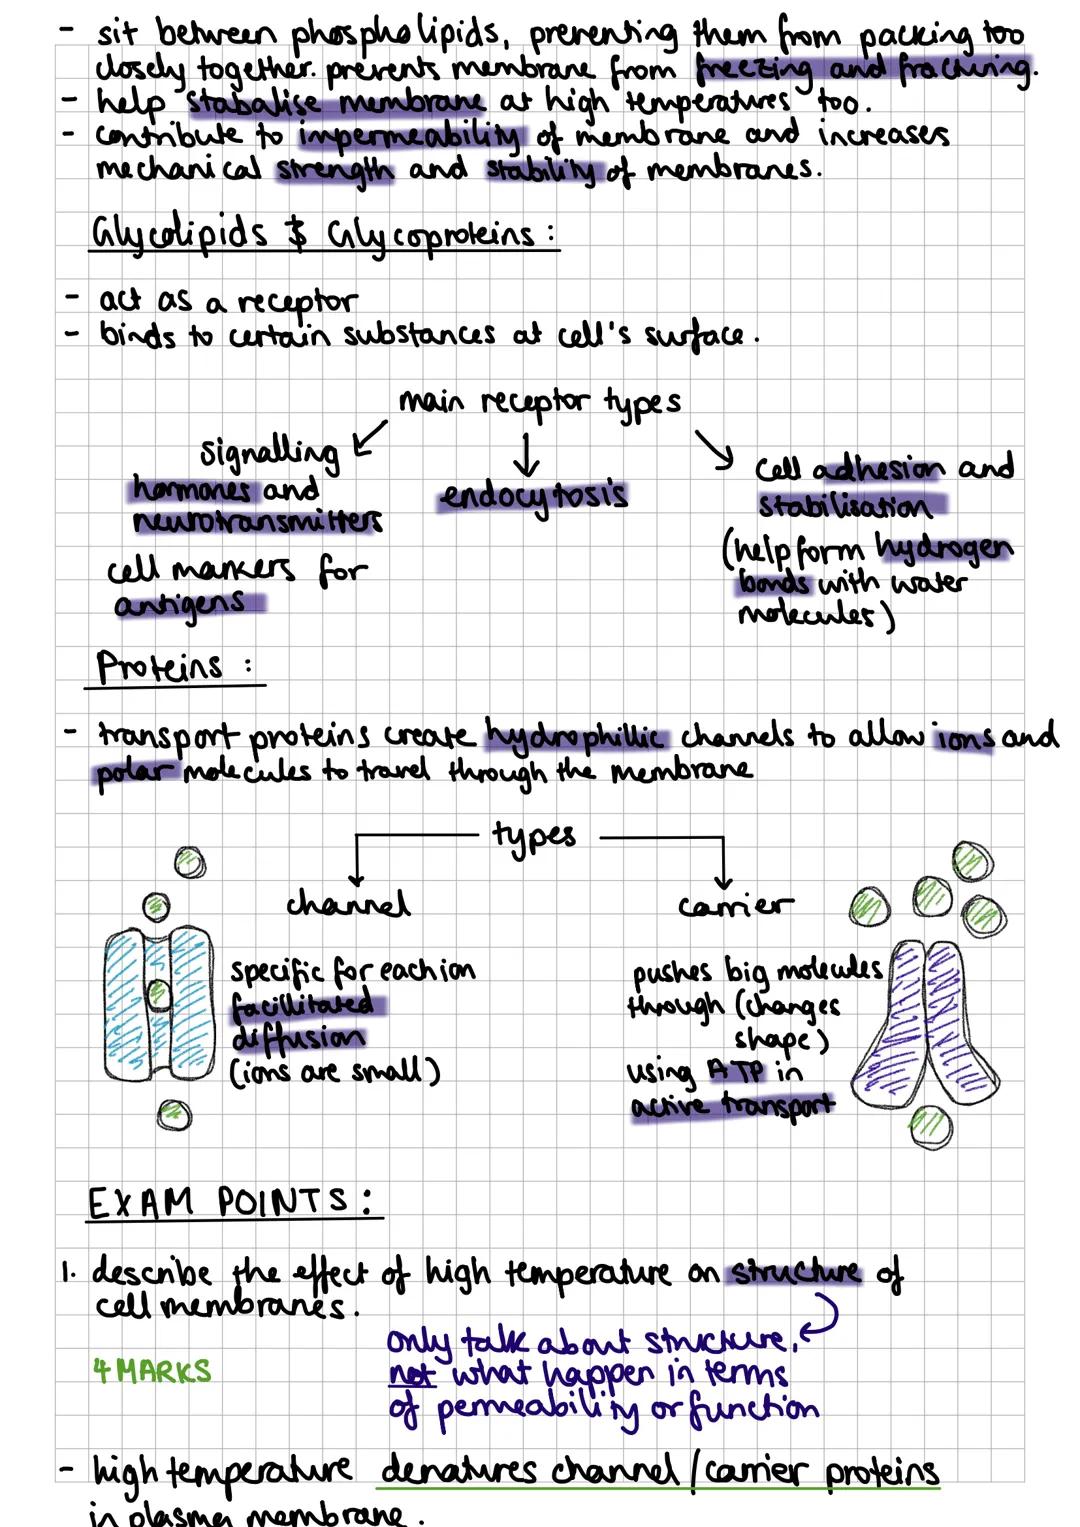 - sit between phospholipids, preventing them from packing too
closely together. prevents membrane from freezing and fracturing.
- help stabalise membrane at high temperatures too.
- contribute to impermeability of membrane and increases
mechanical strength and stability of membranes.
Glycolipids & Glycoproteins :
- act as a receptor
- binds to certain substances at cell's surface.
main receptor types
signalling
hormones and
neurotransmitters
cell markers for
antigens
endocytosis
cell adhesion and
stabilisation
(help form hydrogen
bonds with water
molecules)
Proteins :
- transport proteins create hydrophillic channels to allow ions and
polar molecules to travel through the membrane
types
channel
specific for each ion
facillitated
diffusion
(ions are small)
carrier
pushes big molecules
through (changes
shape)
using ATP in
active transport
EXAM POINTS :
1. describe the effect of high temperature on structure of
cell membranes.
only talk about structure,
not what happen in terms
of permeability or function
4 MARKS
- high temperature denatures channel / carrier proteins
in plasma membrane.